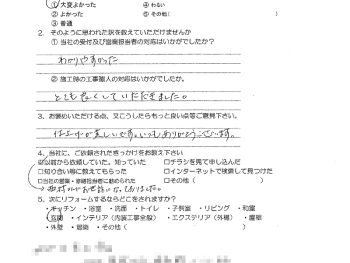 ① 大変よかった ④ わるい
② よかった ⑤ その他(
③ 普通
2. そのように思われた訳を教えていただけませんか
① 当社の受付及び営業担当者の対応はいかがでしたか？
わかりやすかった
② 施工時の工事職人の対応はいかがでしたか。
とてもよくしていただきました。
3、お褒めいただける点、又こうしたらもっと良い点等ご意見下さい。
仕上がりが美しいです。いつもありがとうございます。
4、当社に、ご依頼されたきっかけをお教え下さい
以前から依頼していた。知っていた □チラシを見て申し込んだ
□知り合い等に教えてもらった □インターネットで検索して見つけた
□当社の営業・修繕担当者に勧められた □その他（ ）
5、次にリフォームするならどこをされますか？
・キッチン ・浴室 ・洗面 ・トイレ ・子供室 ・リビング ・和室
玄関 ・インテリア（内装工事全般） ・エクステリア（外構） ・屋根
・外壁 ・居間 ・その他（ ）